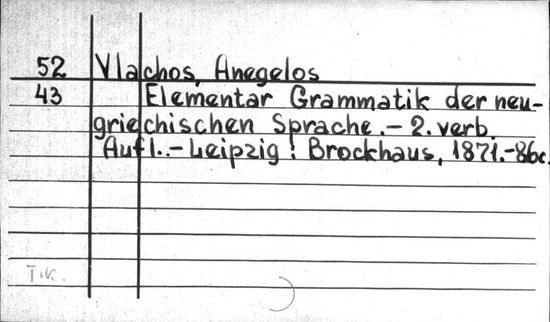 52 Vlachos, Anegelos
43 Elementar Grammatik der neu-
griechischen Sprache. - 2. verb.
Aufl.. - Leipzig : Brockhaus, 1871. - 86c.
T.K.